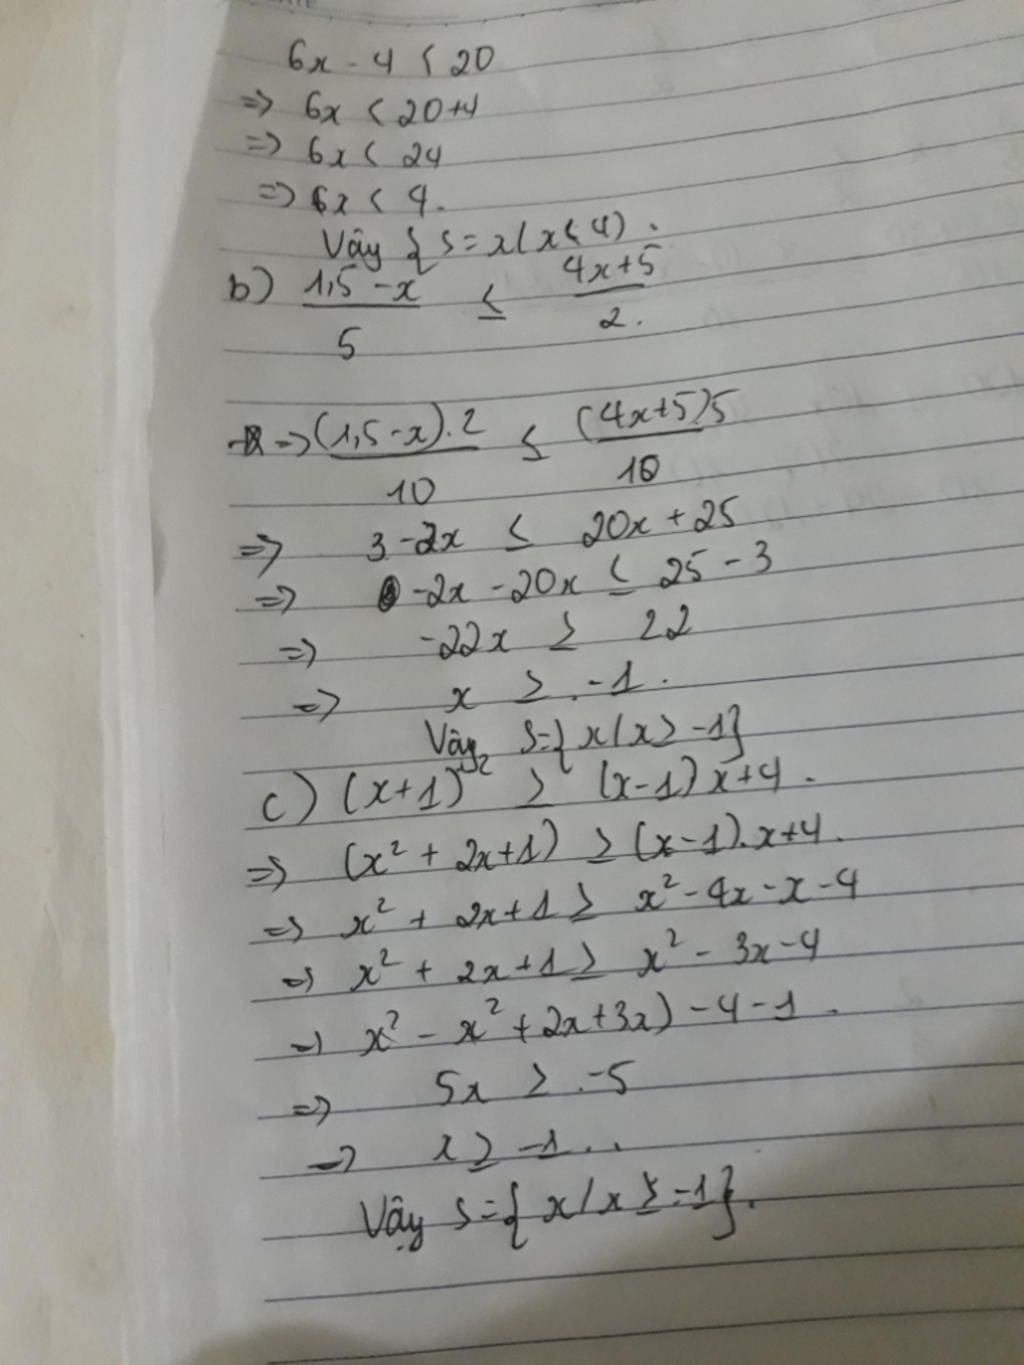 6x - 4 < 20
=> 6x < 20+4
=> 6x < 24
=> 6x < 4.
Vậy { S = x / x < 4) .
b) (1,5 - x)/5 ≤ (4x+5)/2.
=> (1,5-x).2/10 ≤ (4x+5)5/10
=> 3 - 2x ≤ 20x + 25
=> -2x - 20x ≤ 25 - 3
=> -22x ≥ 22
=> x ≥ -1.
Vậy S={ x/x ≥ -1}
c) (x+1)² ≥ (x-1) x+4.
=> (x² + 2x+1) ≥ (x-1). x+4.
=> x² + 2x+1 ≥ x² - 4x - x - 4
=> x² + 2x+1 ≥ x² - 3x - 4
=> x² - x² + 2x+3x) - 4 - 1.
=> 5x ≥ -5
=> x ≥ -1..
Vậy S={ x/x ≥ -1}.